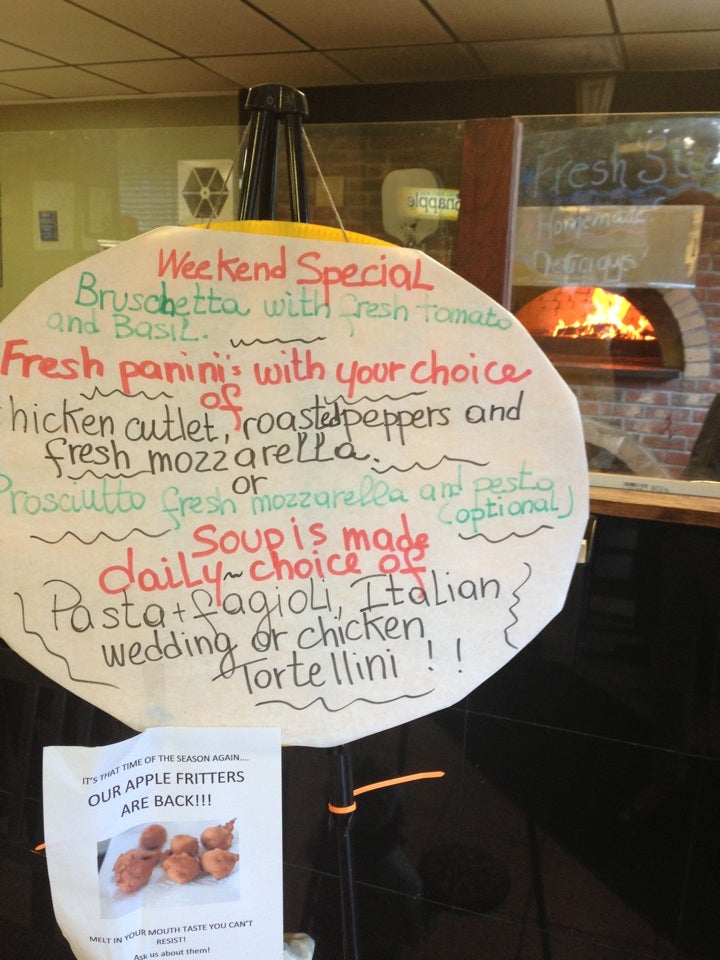 Weekend Special
Bruschetta with fresh tomato
and Basil.
Fresh panini's with your choice
of
hicken cutlet, roasted peppers and
fresh mozzarella.
or
Prosciutto fresh mozzarella and pesto
(optional)
Soup is made
daily ~ choice of
Pasta + fagioli, Italian
wedding or chicken
Tortellini !!
IT'S THAT TIME OF THE SEASON AGAIN....
OUR APPLE FRITTERS
ARE BACK!!!
MELT IN YOUR MOUTH TASTE YOU CAN'T
RESIST!
Ask us about them!
Snapple
Fresh
Homemade